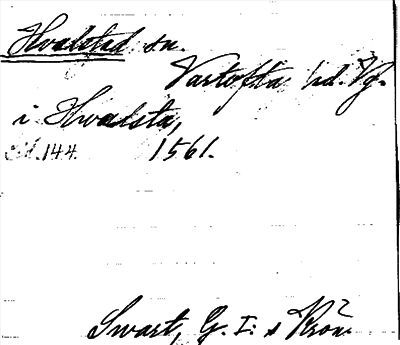 Hvalstad sn.
Vartofta hd. Vg.
i Hwalsta,
144. 1561.
Swart, G. I: s Krön.